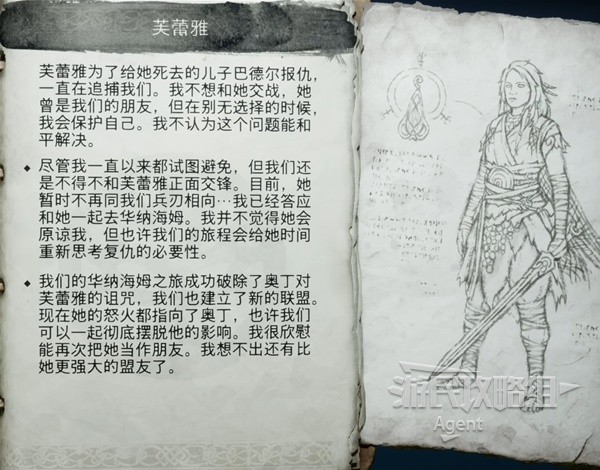 芙蕾雅
芙蕾雅为了给她死去的儿子巴德尔报仇，
一直在追捕我们。我不想和她交战，她
曾是我们的朋友，但在别无选择的时候，
我会保护自己。我不认为这个问题能和
平解决。
尽管我一直以来都试图避免，但我们还
是不得不和芙蕾雅正面交锋。目前，她
暂时不再同我们兵刃相向…我已经答应
和她一起去华纳海姆。我并不觉得她会
原谅我，但也许我们的旅程会给她时间
重新思考复仇的必要性。
我们的华纳海姆之旅成功破除了奥丁对
芙蕾雅的诅咒，我们也建立了新的联盟。
现在她的怒火都指向了奥丁，也许我们
可以一起彻底摆脱他的影响。我很欣慰
能再次把她当作朋友。我想不出还有比
她更强大的盟友了。
游民攻略组
Agent